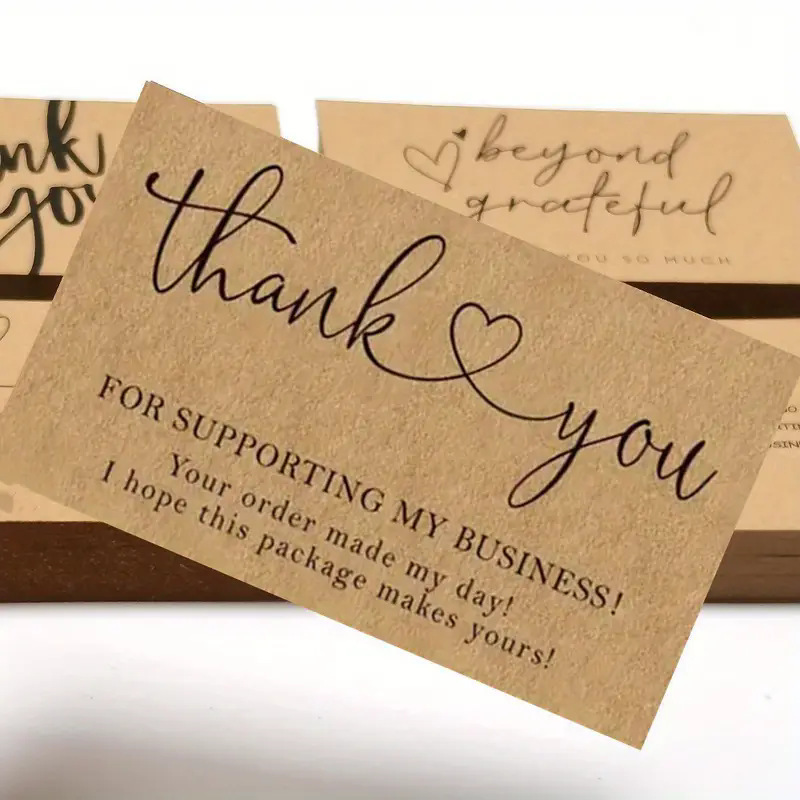 thank you
FOR SUPPORTING MY BUSINESS!
Your order made my day!
I hope this package makes yours!
you
beyond
grateful
YOU SO MUCH